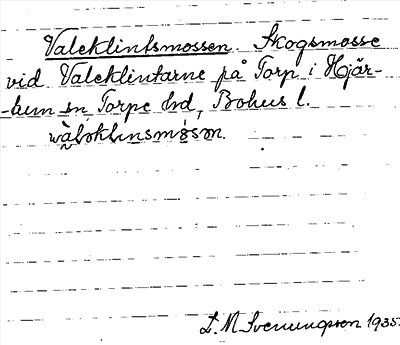 Valeklintsmossen Skogsmosse
vid Valeklintarne på Torp i Hjär-
-tum sn Torpe hd, Bohus l.
L. M. Svenungsson 1935.